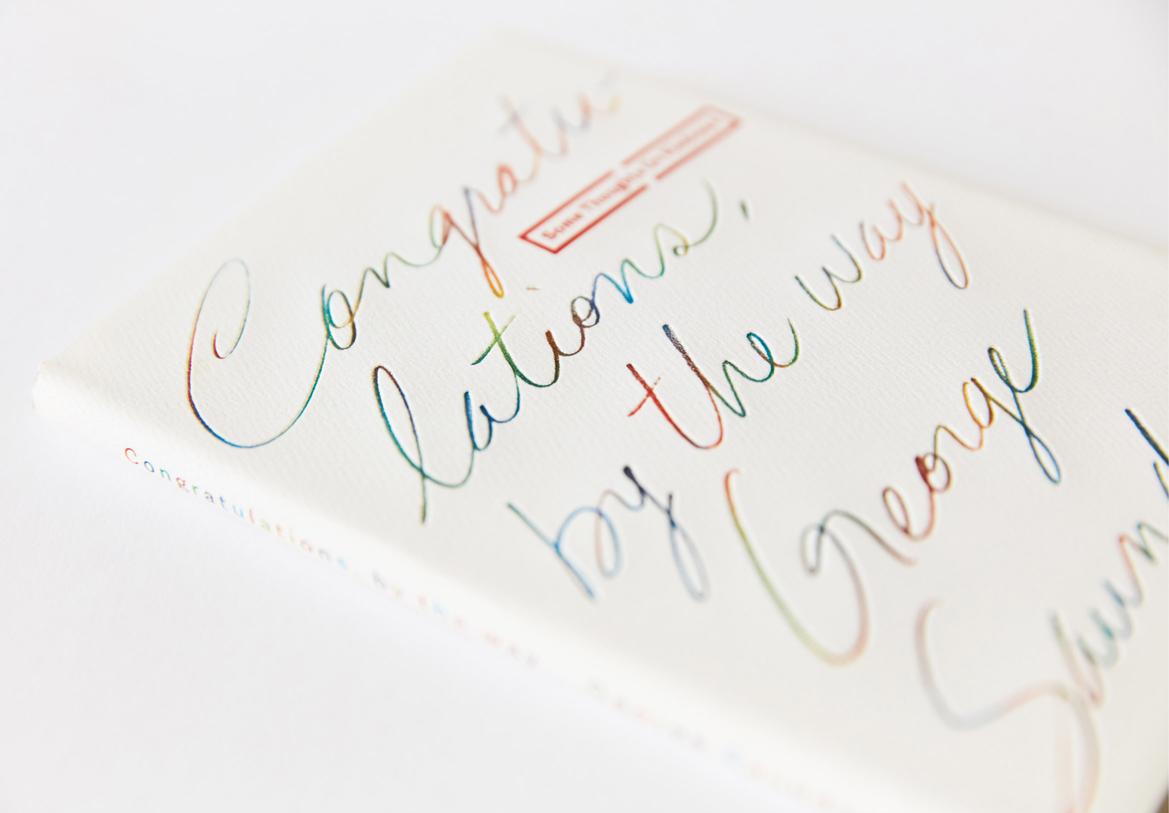 Congratu-
Some Thoughts on Kindness
lations,
by the way
George
Saund
Congratulations, by the way